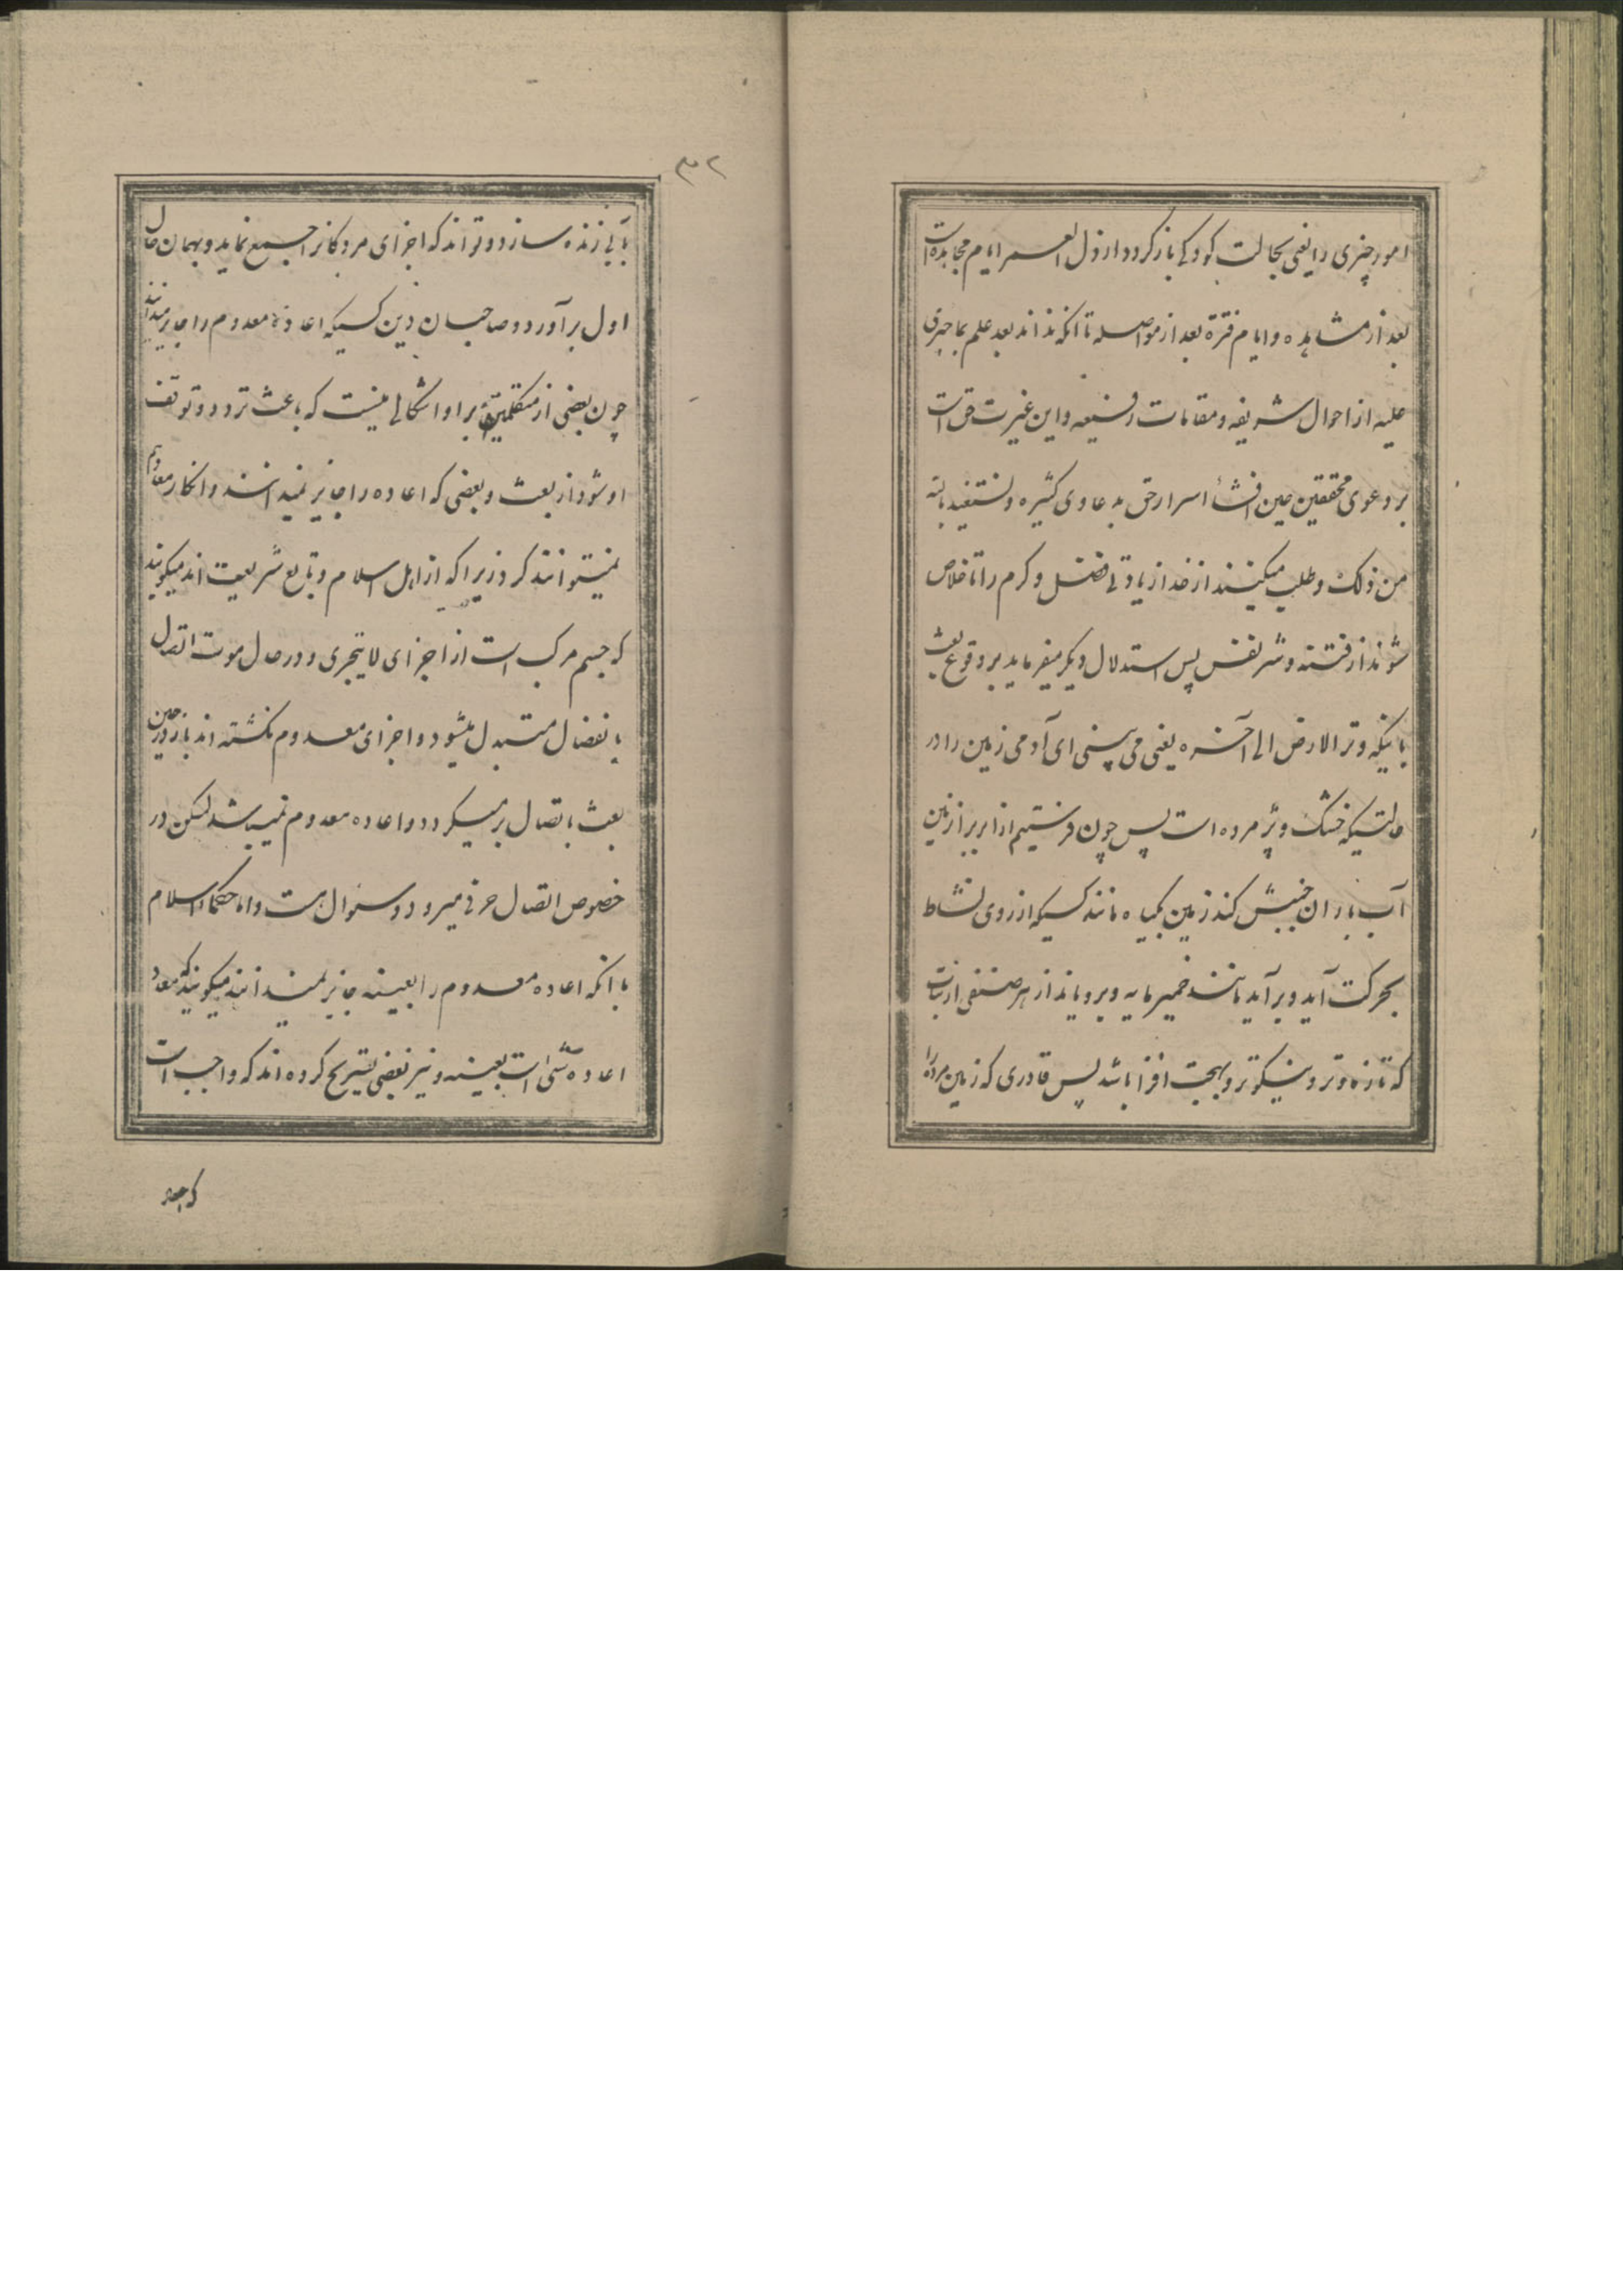 امور چیزی را یعنی بحالت کودکی بازگردد ارذل العمر ایام مجاهده است
بعد از مشاهده و ایام فترة بعد از مواصله تا انکه نداند بعد علم بما جری
علیه از احوال شریفه و مقامات رفیعه و این غیرت حق است
بر دعوی محققین حین افشأ اسرار حق بدعاوی کثیره و نستعیذ بالله
من ذلک و طلب میکنیند از خدا زیادتی فضل و کرم را تا خلاص
شوند از فتنه و شر نفس پس استدلال دیگر میفرماید بر وقوع بعث
باینکه و تر الارض الی آخره یعنی می بینی ای آدمی زمین را در
حالتیکه خشک و پژمرده است پس چون فرستیم از ابر بر زمین
آب باران جنبش کند زمین بگیاه مانند کسیکه از روی نشاط
بحرکت آید و بر آید مانند خمیر مایه و برویاند از هر صنفی از نبات
که تازه و تر و نیکوتر و بهجت افزا باشد پس قادری که زمین مرده را
۳۲
بآبی زنده سازد و تواند که اجزای مردکانرا جمع نماید و بهمان حال
اول بر آورد و صاحبان دین کسیکه اعادهٔ معدوم را جایز میدانند
چون بعضی از متکلمین بر او اشکالی نیست که باعث تردد و توقف
او شود از بعث و بعضی که اعاده را جایز نمیدانند و انکار معاد هم
نمیتوانند کرد زیرا که از اهل اسلام و تابع شریعت اند میکویند
که جسم مرکب است از اجزای لایتجزی و در حال موت اتصال
بانفصال متبدل میشود و اجزای معدوم نکشته اند باز در حین
بعث باتصال بر میکردد و اعاده معدوم نمیباشد لیکن در
خصوص اتصال حرفی میرود و سئوال هست و اما حکماء اسلام
با انکه اعاده معدوم را بعینه جایز نمیدانند میکویند که معاد
اعاده شیٔ است بعینه و نیز بعضی تصریح کرده اند که واجب است